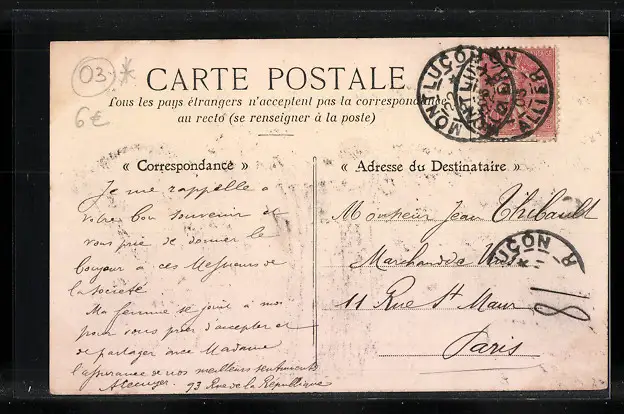 03 *
6€
CARTE POSTALE
Tous les pays étrangers n'acceptent pas la correspondance
au recto (se renseigner à la poste)
MONTLUÇON
ALLIER
« Correspondance »
Je me rappelle a
votre bon souvenir et
vous prie de donner le
bonjour a ces Messieurs de
la société
Ma femme se joint à moi
pour vous prier d'accepter et
de partager avec Madame
l'assurance de nos meilleurs sentiments
93 Rue de la République
« Adresse du Destinataire »
Monsieur Jean Thibault
Marchand de Vins
11 Rue St Maur
Paris
LUÇON
18